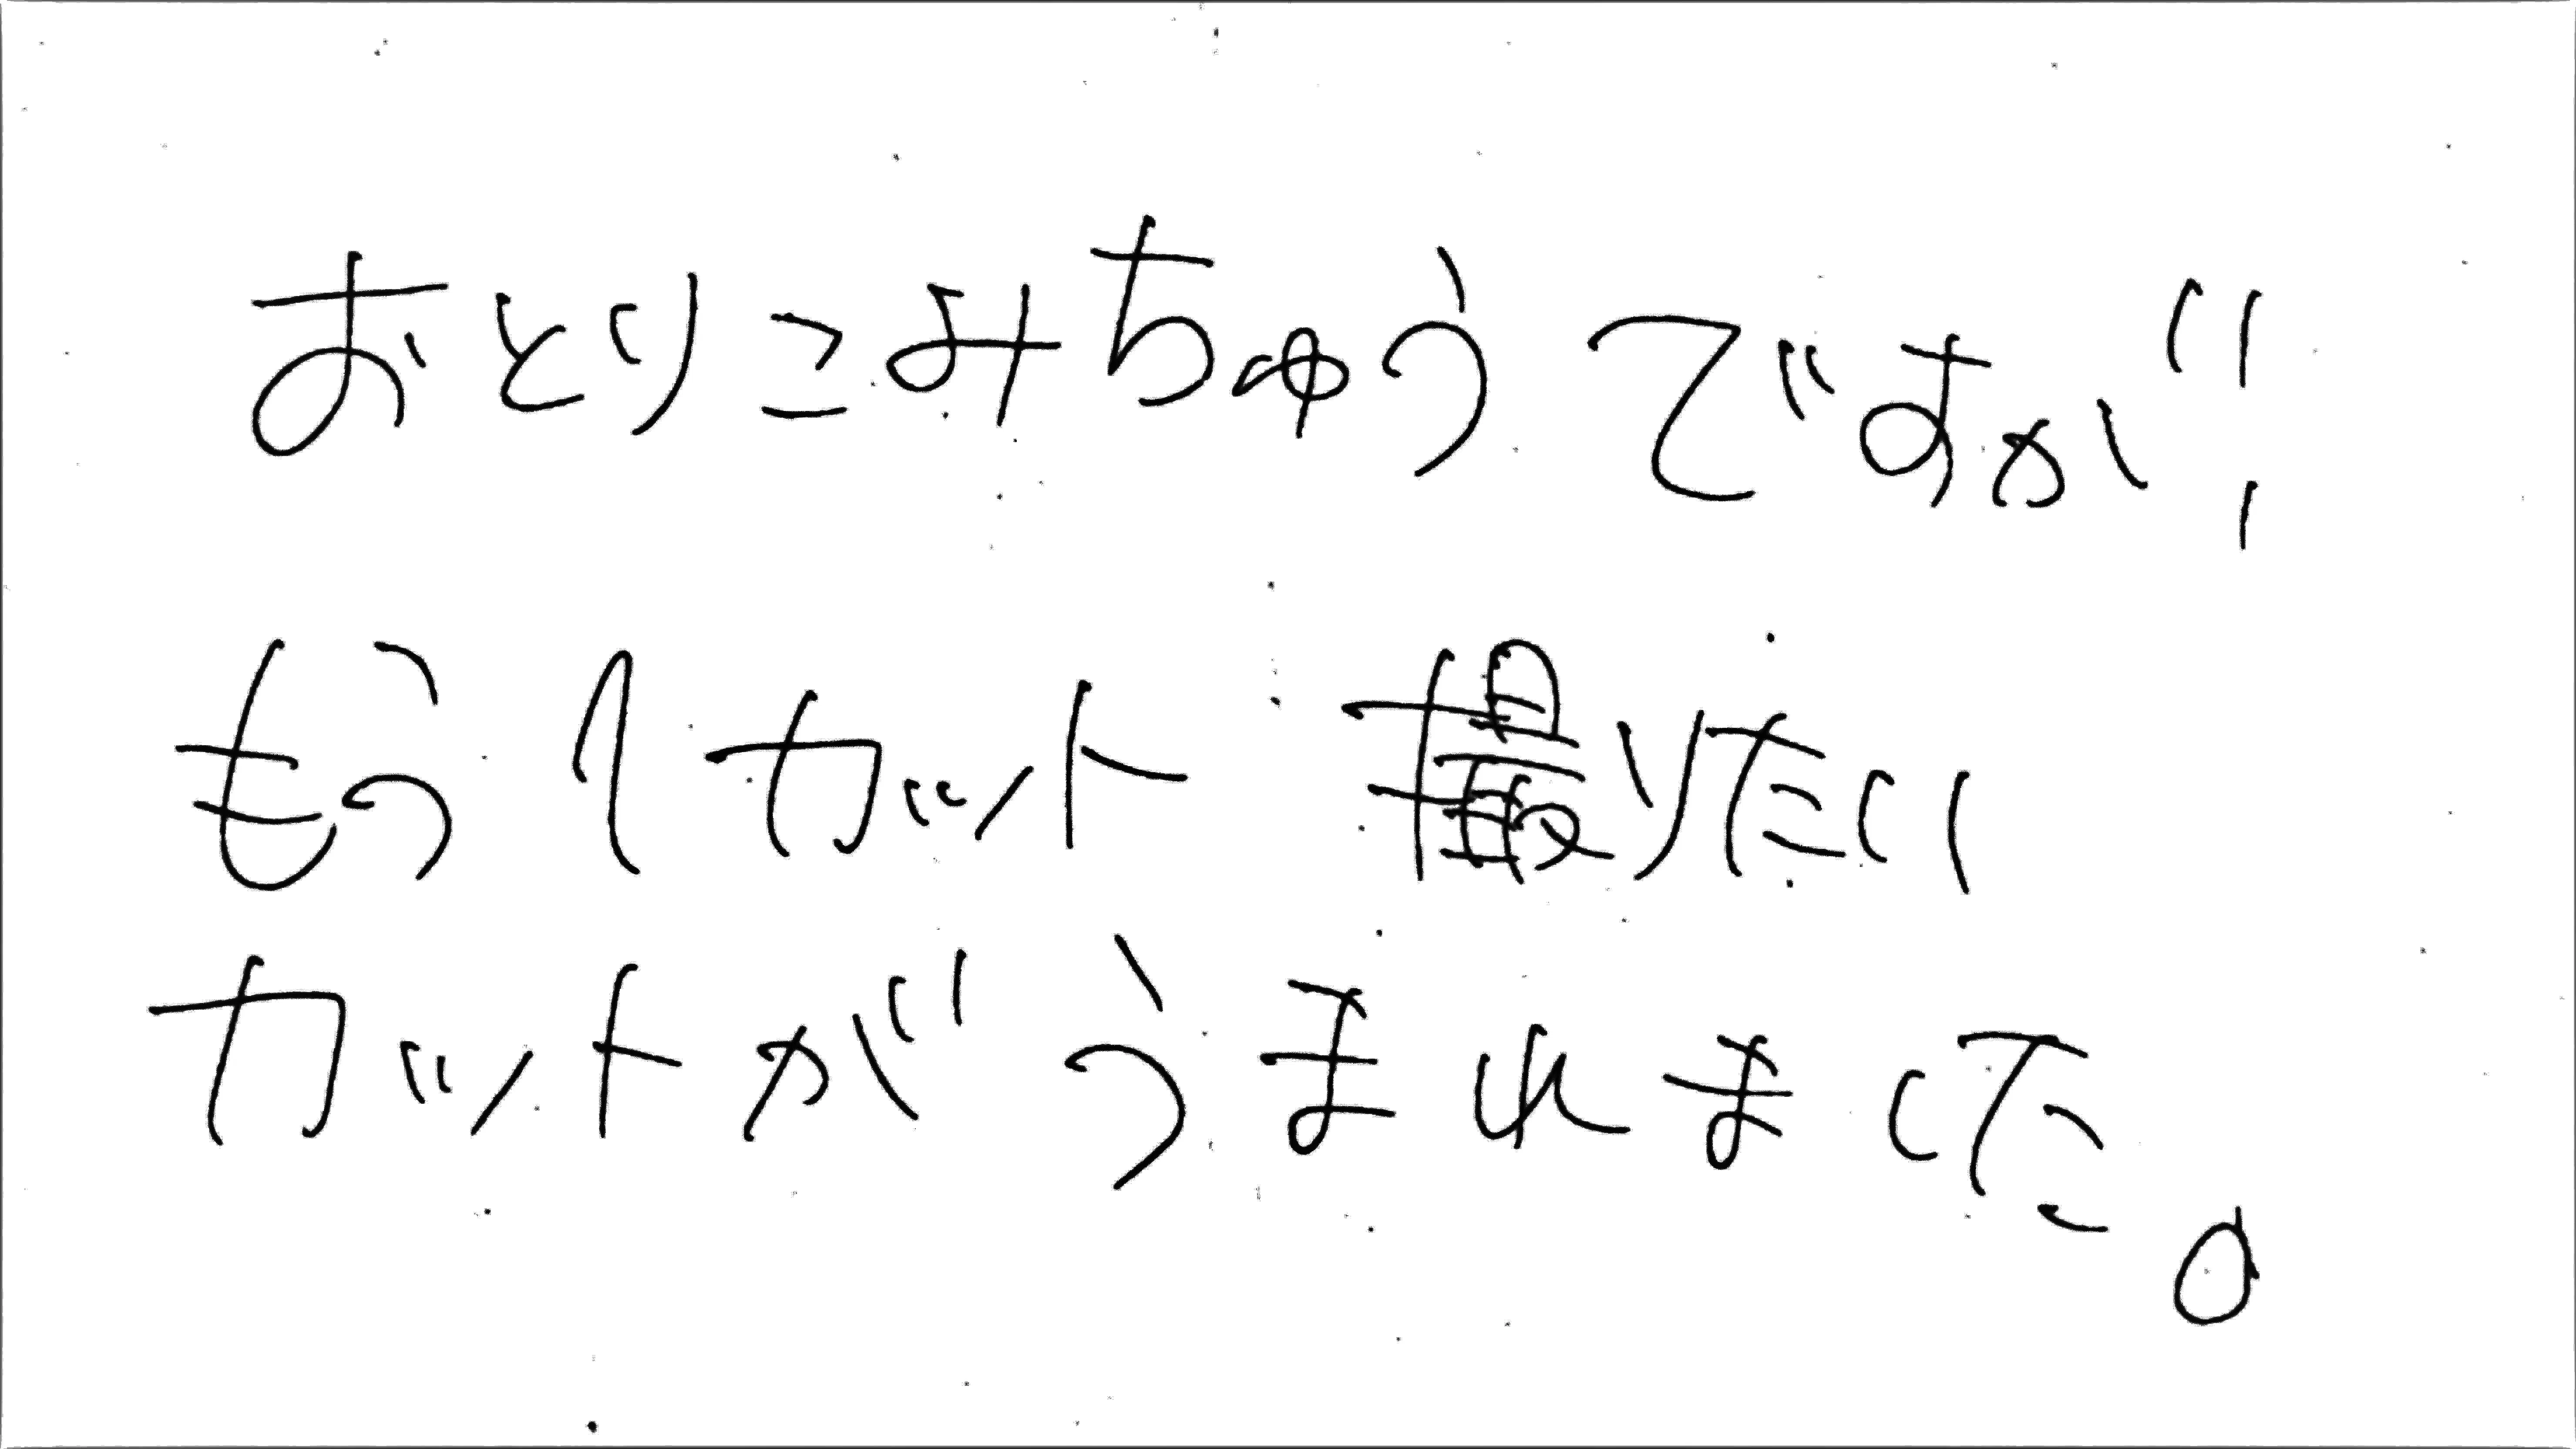 おとりこみちゅうですが、
もう1カット 撮りたい
カットがうまれました。